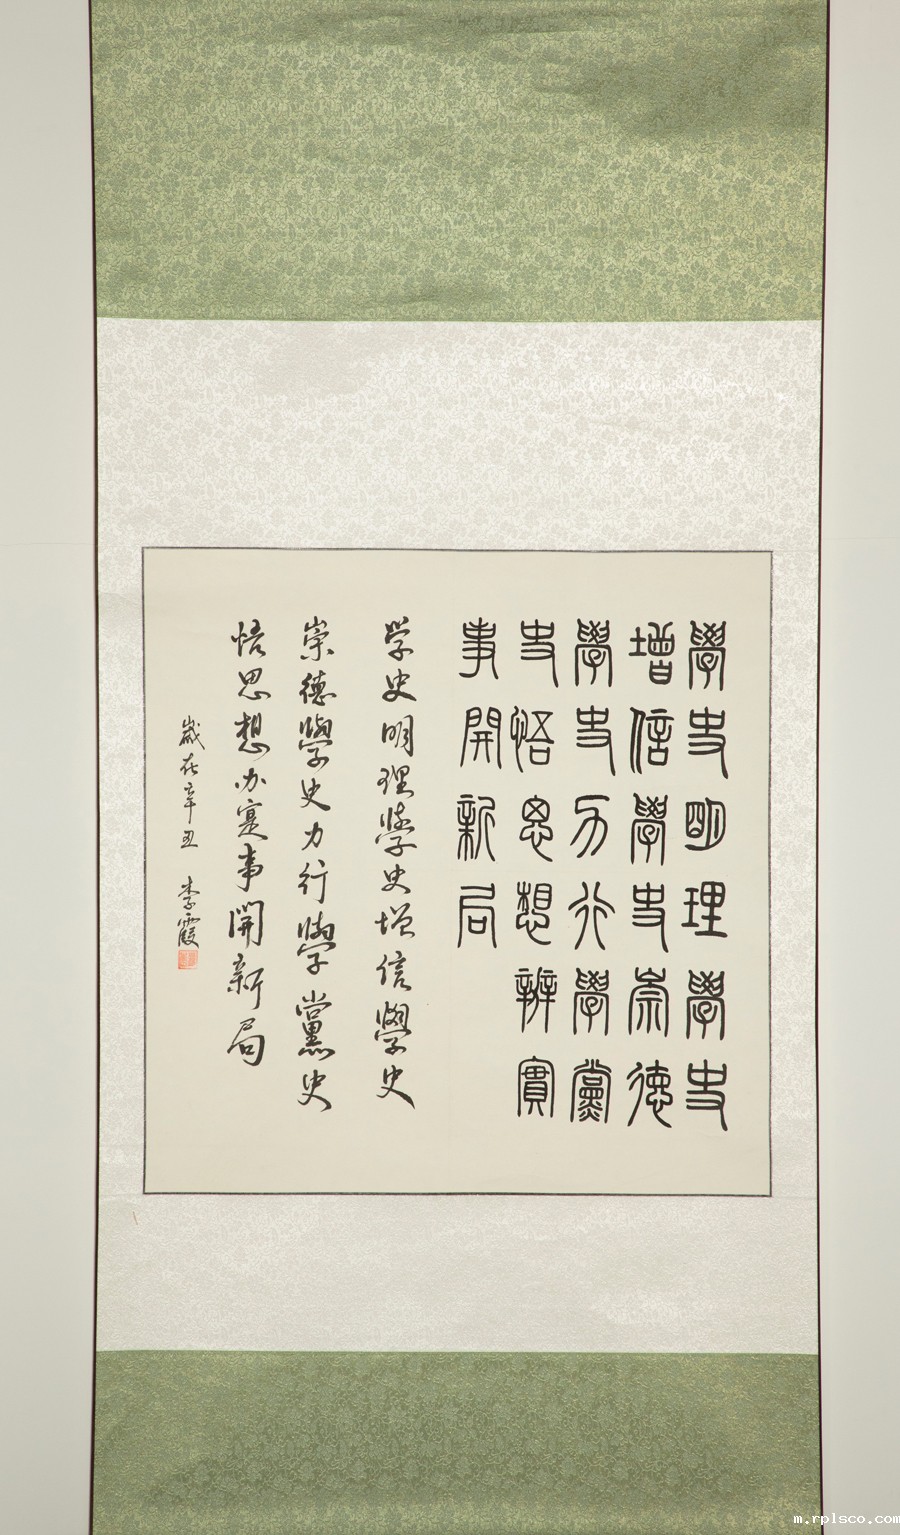 學史明理學史
增信學史崇德
學史力行學黨
史悟思想辦實
事開新局
学史明理學史增信學史
崇德學史力行學黨史
悟思想办寔事開新局
歲在辛丑 李霞
m.rplsco.com